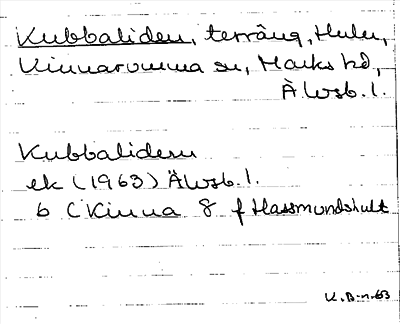 Kubbaliden, terräng, Hulu,
Kinnarumma sn, Marks hd,
Älvsb. l.
Kubbaliden
ek (1963) Älvsb. l.
6 C Kinna 8 f Hassmundshult
K.B-n-63